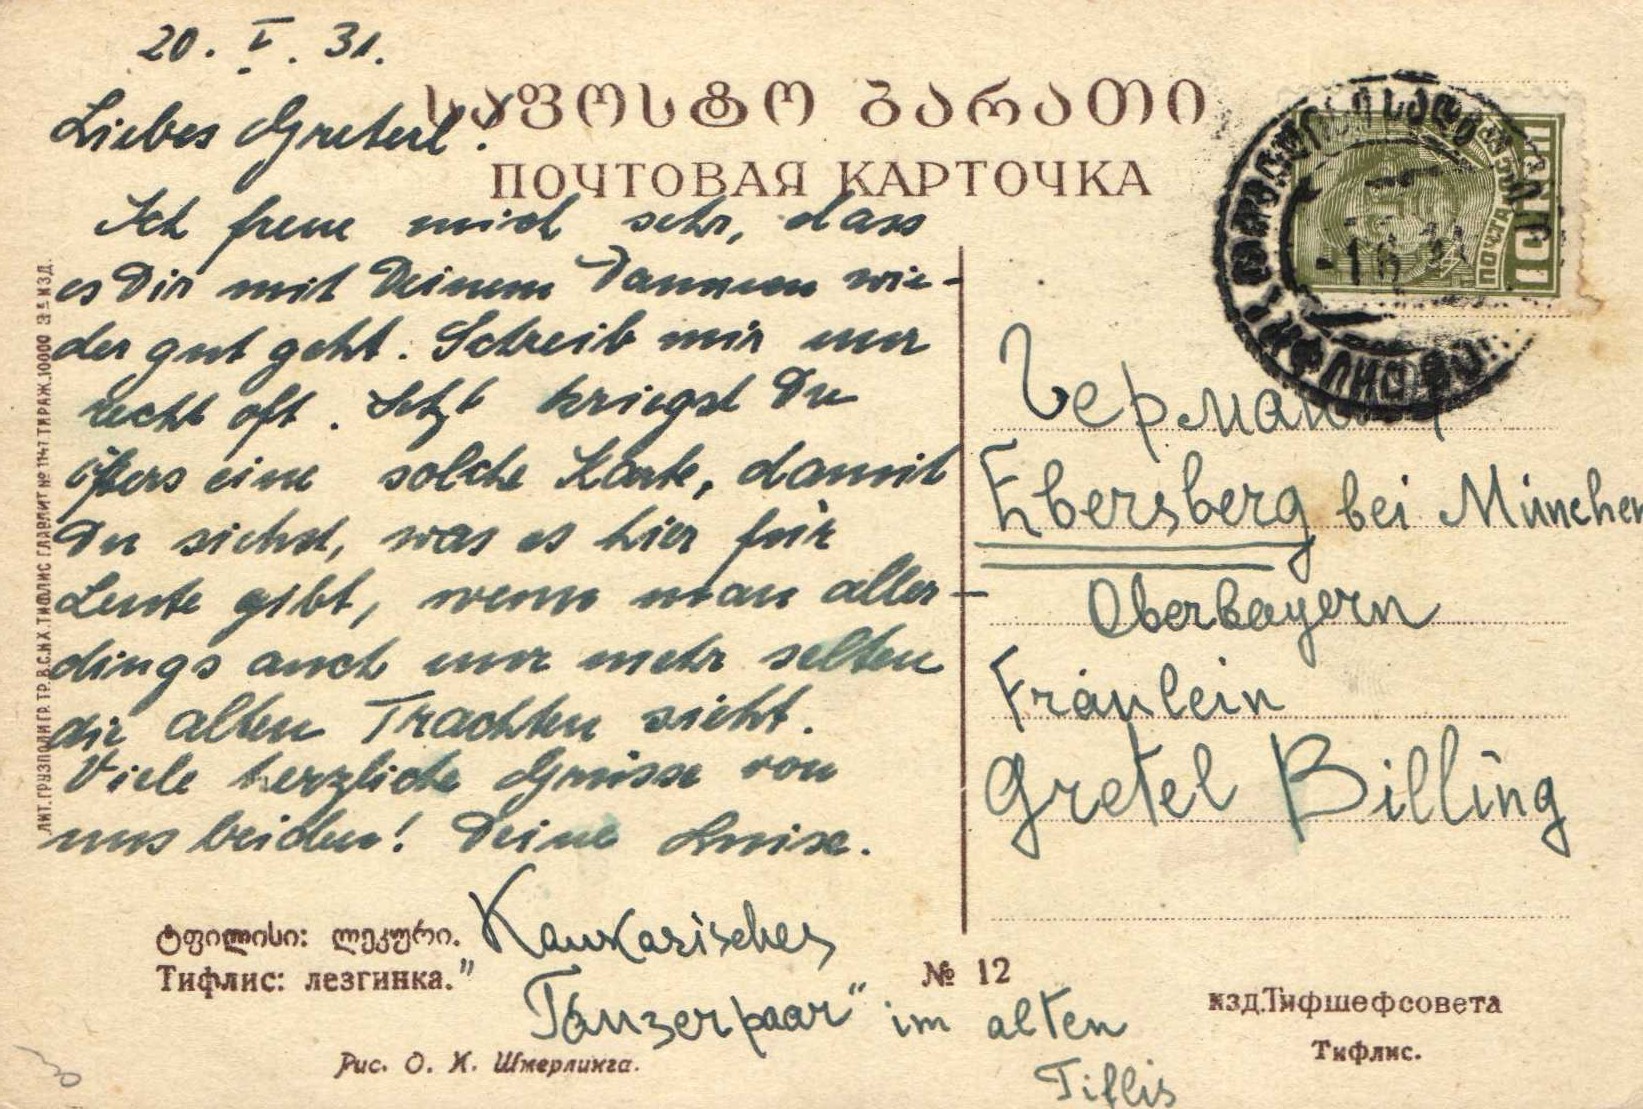 20. V. 31.
Liebes Greterl!
საფოსტო ბარათი
ПОЧТОВАЯ КАРТОЧКА
Ich freue mich sehr, dass
es Dir mit Deinem Daumen wie-
der gut geht. Schreib mir nur
recht oft. Jetzt kriegst Du
öfters eine solche Karte, damit
Du siehst, was es hier für
Leute gibt, wenn man aller-
dings auch nur mehr selten
die alten Trachten sieht.
Viele herzliche Grüsse von
uns beiden! Deine Luise.
ПОЧТА
Германия
Ebersberg bei München
Oberbayern
Fräulein
Gretel Billing
ტფილისი: ლეკური.
Тифлис: лезгинка.
"Kaukasisches
Tänzerpaar" im alten
Tiflis
№ 12
Рис. О. И. Шмерлинга.
изд.Тифшефсовета
Тифлис.
ЛИТ. ГРУЗПОЛИГР. ТР. В.С.Н.Х. ТИФЛИС ГЛАВЛИТ № 1147 ТИРАЖ. 10000